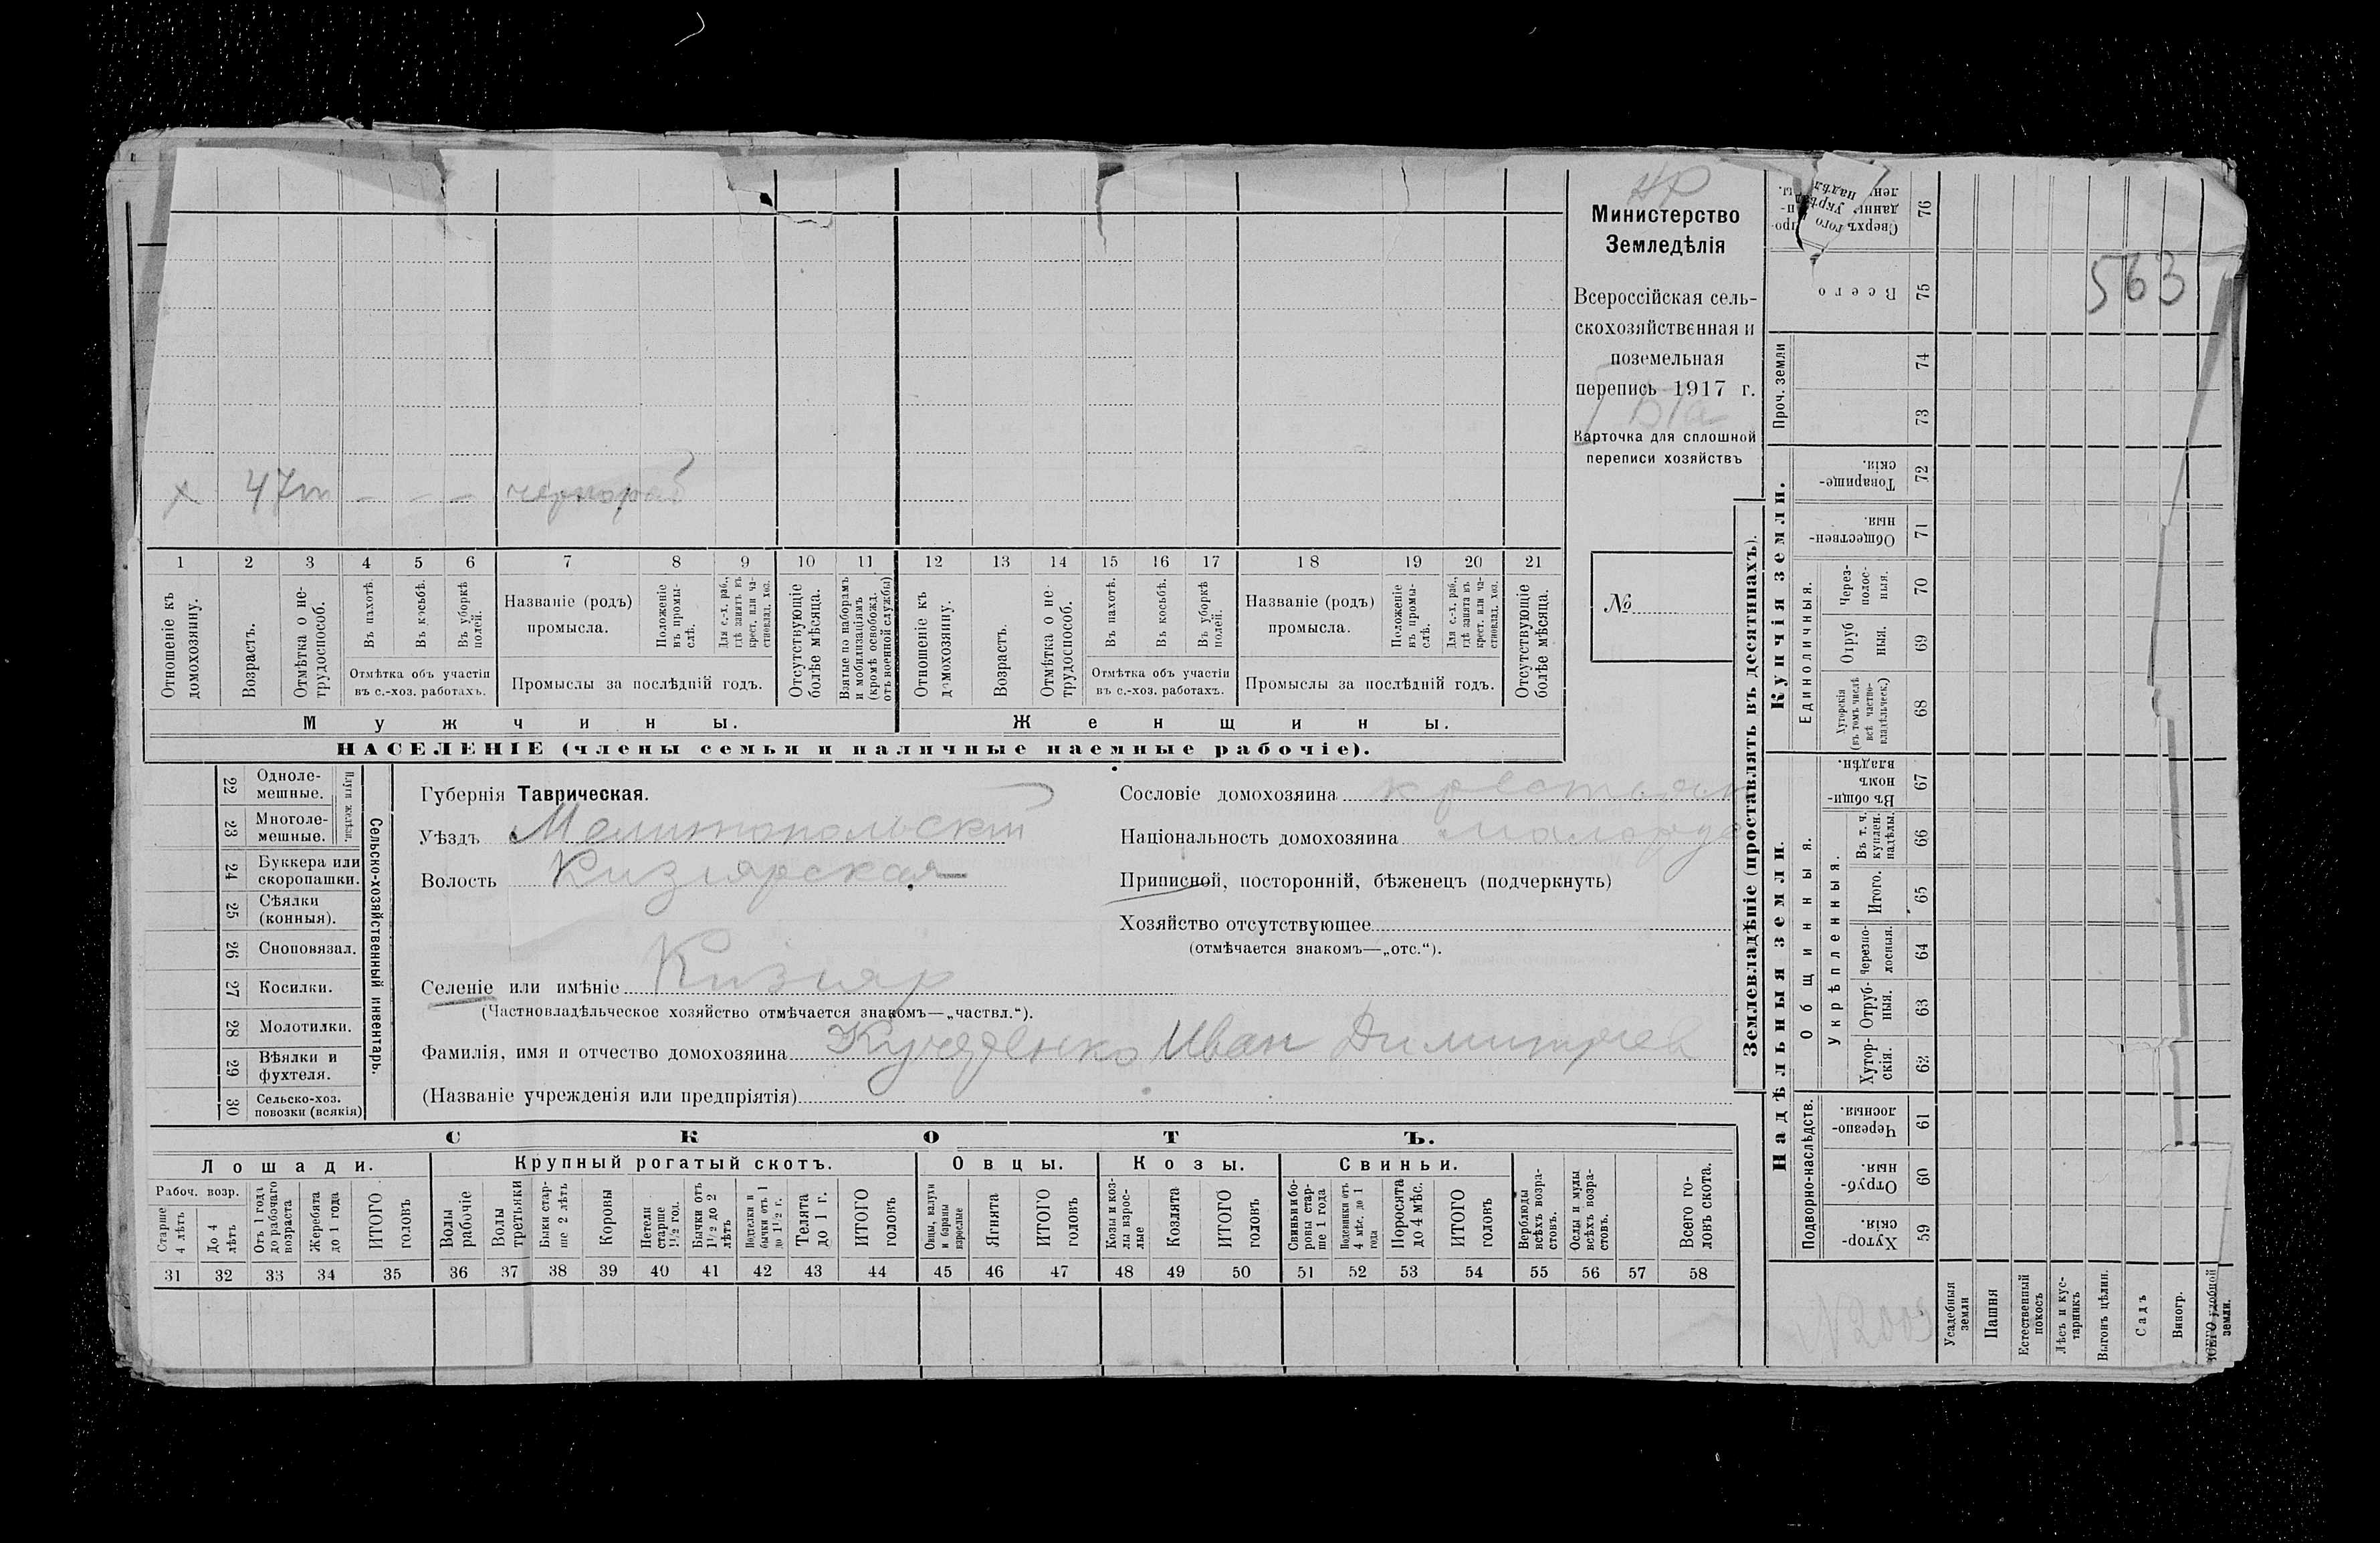 Министерство
Земледѣлія
Всероссійская сель-
скохозяйственная и
поземельная
перепись 1917 г.
Карточка для сплошной
переписи хозяйствъ
№
563
х 47 – – – чернораб
1 2 3 4 5 6 7 8 9 10 11 12 13 14 15 16 17 18 19 20 21
Отношеніе къ домохозяину.
Возрастъ.
Отмѣтка о не-трудоспособ.
Въ пахотѣ.
Въ косьбѣ.
Въ уборкѣ полей.
Отмѣтка объ участіи
въ с.-хоз. работахъ.
Названіе (родъ)
промысла.
Положеніе въ промы-слѣ.
Для с.-х. раб., гдѣ занятъ въ крест. или ча-стновлад. хоз.
Промыслы за послѣдній годъ.
Отсутствующіе болѣе мѣсяца.
Взятые по наборамъ и мобилизаціямъ (кромѣ освобожд. отъ военной службы)
Отношеніе къ домохозяину.
Возрастъ.
Отмѣтка о не-трудоспособ.
Въ пахотѣ.
Въ косьбѣ.
Въ уборкѣ полей.
Отмѣтка объ участіи
въ с.-хоз. работахъ.
Названіе (родъ)
промысла.
Положеніе въ промы-слѣ.
Для с.-х. раб., гдѣ занята въ крест. или ча-стновлад. хоз.
Промыслы за послѣдній годъ.
Отсутствующіе болѣе мѣсяца.
Мужчины. Женщины.
НАСЕЛЕНІЕ (члены семьи и наличные наемные рабочіе).
Сельско-хозяйственный инвентарь.
Плуги желѣзн.
22 Одноле-мешные.
23 Многоле-мешные.
24 Буккера или скоропашки.
25 Сѣялки (конныя).
26 Сноповязал.
27 Косилки.
28 Молотилки.
29 Вѣялки и фухтеля.
30 Сельско-хоз. повозки (всякія)
Губернія Таврическая.
Уѣздъ Мелитопольскій
Волость Кизіярская
Селеніе или имѣніе Кизіяр
(Частновладѣльческое хозяйство отмѣчается знакомъ—„частвл.“).
Фамилія, имя и отчество домохозяина Иван Димитриев
(Названіе учрежденія или предпріятія)
Сословіе домохозяина крестьян
Національность домохозяина малорус
Приписной, посторонній, бѣженецъ (подчеркнуть)
Хозяйство отсутствующее
(отмѣчается знакомъ—„отс.“).
СКОТЪ.
Лошади. Крупный рогатый скотъ. Овцы. Козы. Свиньи.
Рабоч. возр.
Старше 4 лѣтъ
До 4 лѣтъ
Отъ 1 года до рабочаго возраста
Жеребята до 1 года
ИТОГО головъ
Волы рабочіе
Волы третьяки
Быки стар-ше 2 лѣтъ
Коровы
Нетели старше 1½ год.
Бычки отъ 1½ до 2 лѣтъ
Подтелки и бычки отъ 1 до 1½ г.
Телята до 1 г.
ИТОГО головъ
Овцы, валухи и бараны взрослые
Ягнята
ИТОГО головъ
Козы и коз-лы взрос-лые
Козлята
ИТОГО головъ
Свиньи и бо-ровы стар-ше 1 года
Подсвинки отъ 4 мѣс. до 1 года
Поросята до 4 мѣс.
ИТОГО головъ
Верблюды всѣхъ возра-стовъ.
Ослы и мулы всѣхъ возра-стовъ.
Всего го-ловъ скота.
31 32 33 34 35 36 37 38 39 40 41 42 43 44 45 46 47 48 49 50 51 52 53 54 55 56 57 58
Землевладѣніе (проставлять въ десятинахъ).
Надѣльныя земли. Купчія земли. Проч. земли
Подворно-наслѣдств. Общинныя. Единоличныя.
Укрѣпленныя.
Хутор-скія. 59
Отруб-ныя. 60
Черезпо-лосныя. 61
Хутор-скія. 62
Отруб-ныя. 63
Черезпо-лосныя. 64
Итого. 65
Въ т. ч. куплен. надѣлы. 66
Въ общи-номъ владѣн. 67
Хуторскія (въ томъ числѣ всѣ частно-владѣльческ.) 68
Отруб ныя. 69
Через-полос-ныя. 70
Обществен-ныя. 71
Товарище-скія. 72
73
74
Всего 75
76
Усадебныя земли
Пашня
Естественный покосъ
Лѣсъ и кус-тарникъ
Выгонъ цѣлин.
Садъ
Виногр.
ВСЕГО удобной земли.